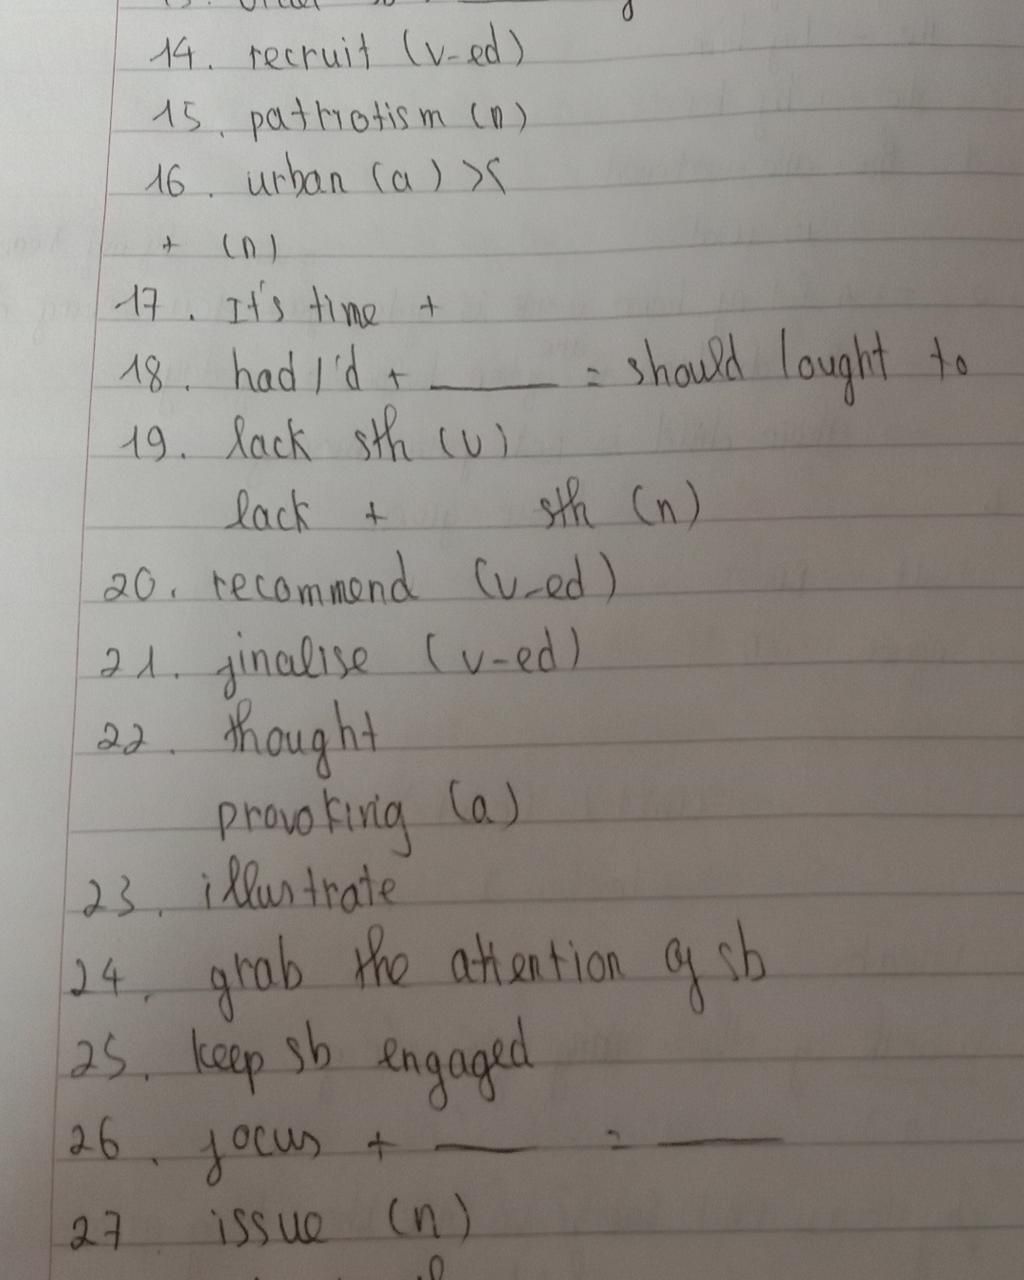 14. recruit (v-ed)
15. patriotism (n)
16. urban (a) ><
+ (n)
17. It's time +
18. had / 'd + ______ = should / ought to
19. lack sth (v)
lack + sth (n)
20. recommend (v-ed)
21. finalise (v-ed)
22. thought
provoking (a)
23. illustrate
24. grab the attention of sb
25. keep sb engaged
26. focus + ____ = ____
27 issue (n)